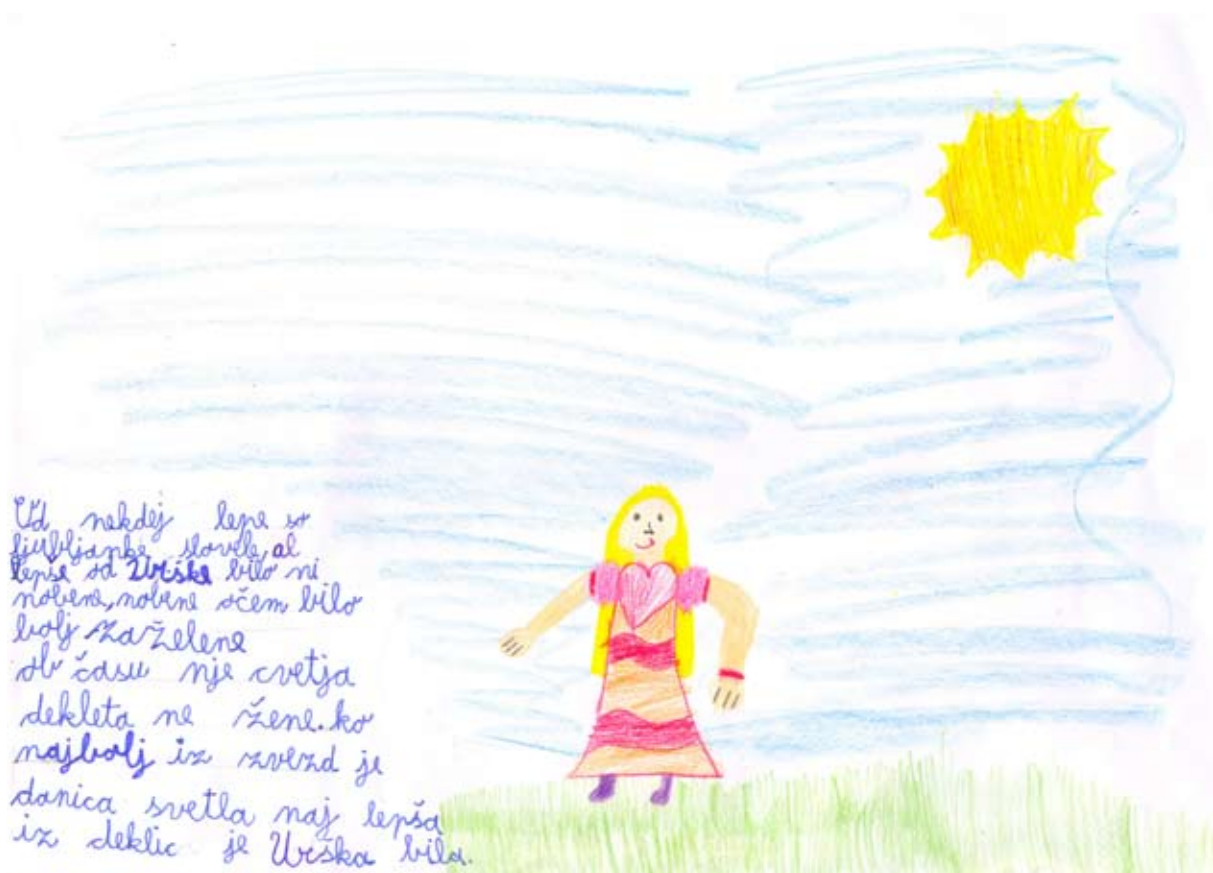 Od nekdej lepe so
ljubljanke slovele, al
lepše od Urške bilo ni
nobene, nobene očem bilo
bolj zaželene
ob času nje cvetja
dekleta ne žene. ko
najbolj iz zvezd je
danica svetla naj lepša
iz deklic je Urška bila.